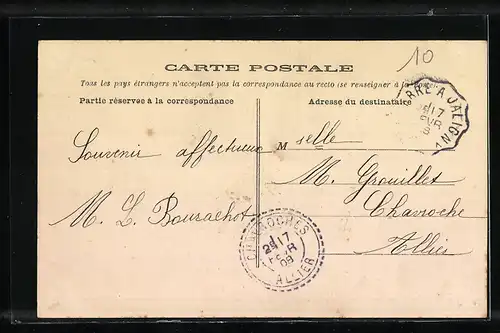 10
CARTE POSTALE
Tous les pays étrangers n'acceptent pas la correspondance au recto (se renseigner à la Poste)
Partie réservée à la correspondance
Adresse du destinataire
A JALIGNY
17
Souvenir affectueux
Mselle
M. Grouillet
M. L. Bourachot
Chavroche
Allier
CHAVROCHES
17
FEVR
08
ALLIER